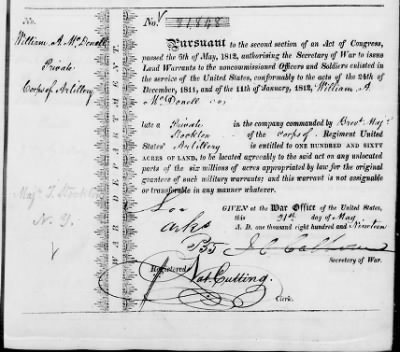 No.
William A. McDonell
Private
Corps of Artillery
Maj. T. Stockton
N. Y.
WAR DEPARTMENT.
No. 21848
Pursuant to the second section of an Act of Congress,
passed the 6th of May, 1812, authorising the Secretary of War to issue
Land Warrants to the noncommissioned Officers and Soldiers enlisted in
the service of the United States, conformably to the acts of the 24th of
December, 1811, and of the 11th of January, 1812, William A.
McDonell
late a Private in the company commanded by Brevt Majr
Stockton of the corps of Regiment United
States' Artillery is entitled to ONE HUNDRED AND SIXTY
ACRES OF LAND, to be located agreeably to the said act on any unlocated
parts of the six millions of acres appropriated by law for the original
grantees of such military warrants; and this warrant is not assignable
or transferable in any manner whatever.
GIVEN at the War Office of the United States,
this 21st day of May
A. D. one thousand eight hundred and Nineteen
J C Calhoun
Secretary of War.
Registered
Nat. Cutting.
Clerk.